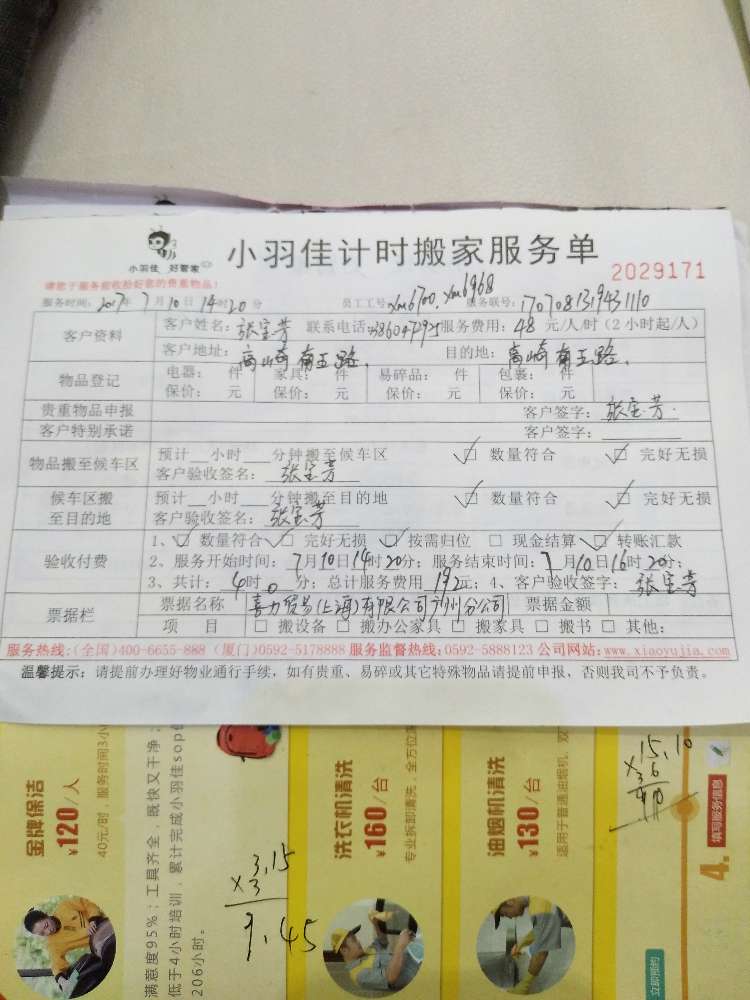 小羽佳 好管家
小羽佳计时搬家服务单
2029171
请您于服务前收拾好您的贵重物品!
服务时间: 2017年 7月 10日 14时20分 员工工号: xm6700, xm6968 服务联号: 1707081319431110
客户资料
客户姓名: 张宝芳 联系电话: 服务费用: 48 元/人/时 (2小时起/人)
客户地址: 高崎南五路. 目的地: 高崎南五路.
物品登记
电器: 件 家具: 件 易碎品: 件 包裹: 件
保价: 元 保价: 元 保价: 元 保价: 元
贵重物品申报 客户签字: 张宝芳.
客户特别承诺 客户签字:
物品搬至候车区
预计__小时__分钟搬至候车区 ☑ 数量符合 ☑ 完好无损
客户验收签名: 张宝芳
候车区搬至目的地
预计__小时__分钟搬至目的地 ☑ 数量符合 ☑ 完好无损
客户验收签名: 张宝芳
验收付费
1、☑ 数量符合 ☑ 完好无损 ☑ 按需归位 □ 现金结算 ☑ 转账汇款
2、服务开始时间: 7月10日14时20分; 服务结束时间: 7月10日16时20分;
3、共计: 4时0分; 总计服务费用 192元; 4、客户验收签字: 张宝芳
票据栏
票据名称 喜力贸易(上海)有限公司广州分公司 票据金额
项 目 □ 搬设备 □ 搬办公家具 □ 搬家具 □ 搬书 □ 其他:
服务热线:(全国)400-6655-888 (厦门)0592-5178888 服务监督热线:0592-5888123 公司网站:www.xiaoyujia.com
温馨提示: 请提前办理好物业通行手续, 如有贵重、易碎或其它特殊物品请提前申报, 否则我司不予负责。
金牌保洁
¥120/人
40元/时, 服务时间3小
满意度95%; 工具齐全, 既快又干净;
低于4小时培训, 累计完成小羽佳sop
206小时。
3.15
×3
9.45
洗衣机清洗
¥160/台
专业拆卸清洗, 全方位
油烟机清洗
¥130/台
适用于普通油烟机, 双
15.10
4.
填写服务信息
立即预约